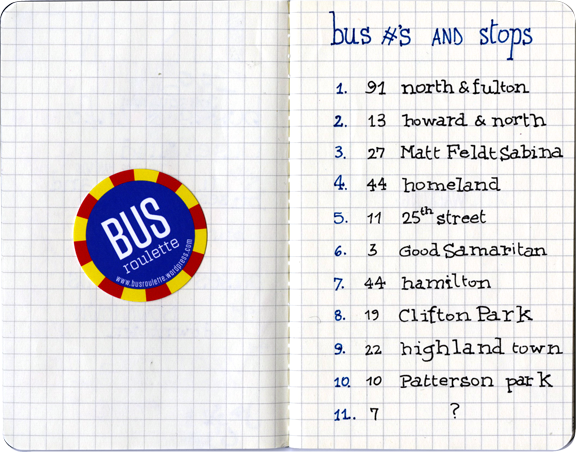 BUS
roulette
www.busroulette.wordpress.com
bus #'s AND stops
1. 91 north & fulton
2. 13 howard & north
3. 27 Matt Feldt Sabina
4. 44 homeland
5. 11 25th street
6. 3 Good Samaritan
7. 44 hamilton
8. 19 Clifton Park
9. 22 highland town
10. 10 Patterson park
11. 7 ?